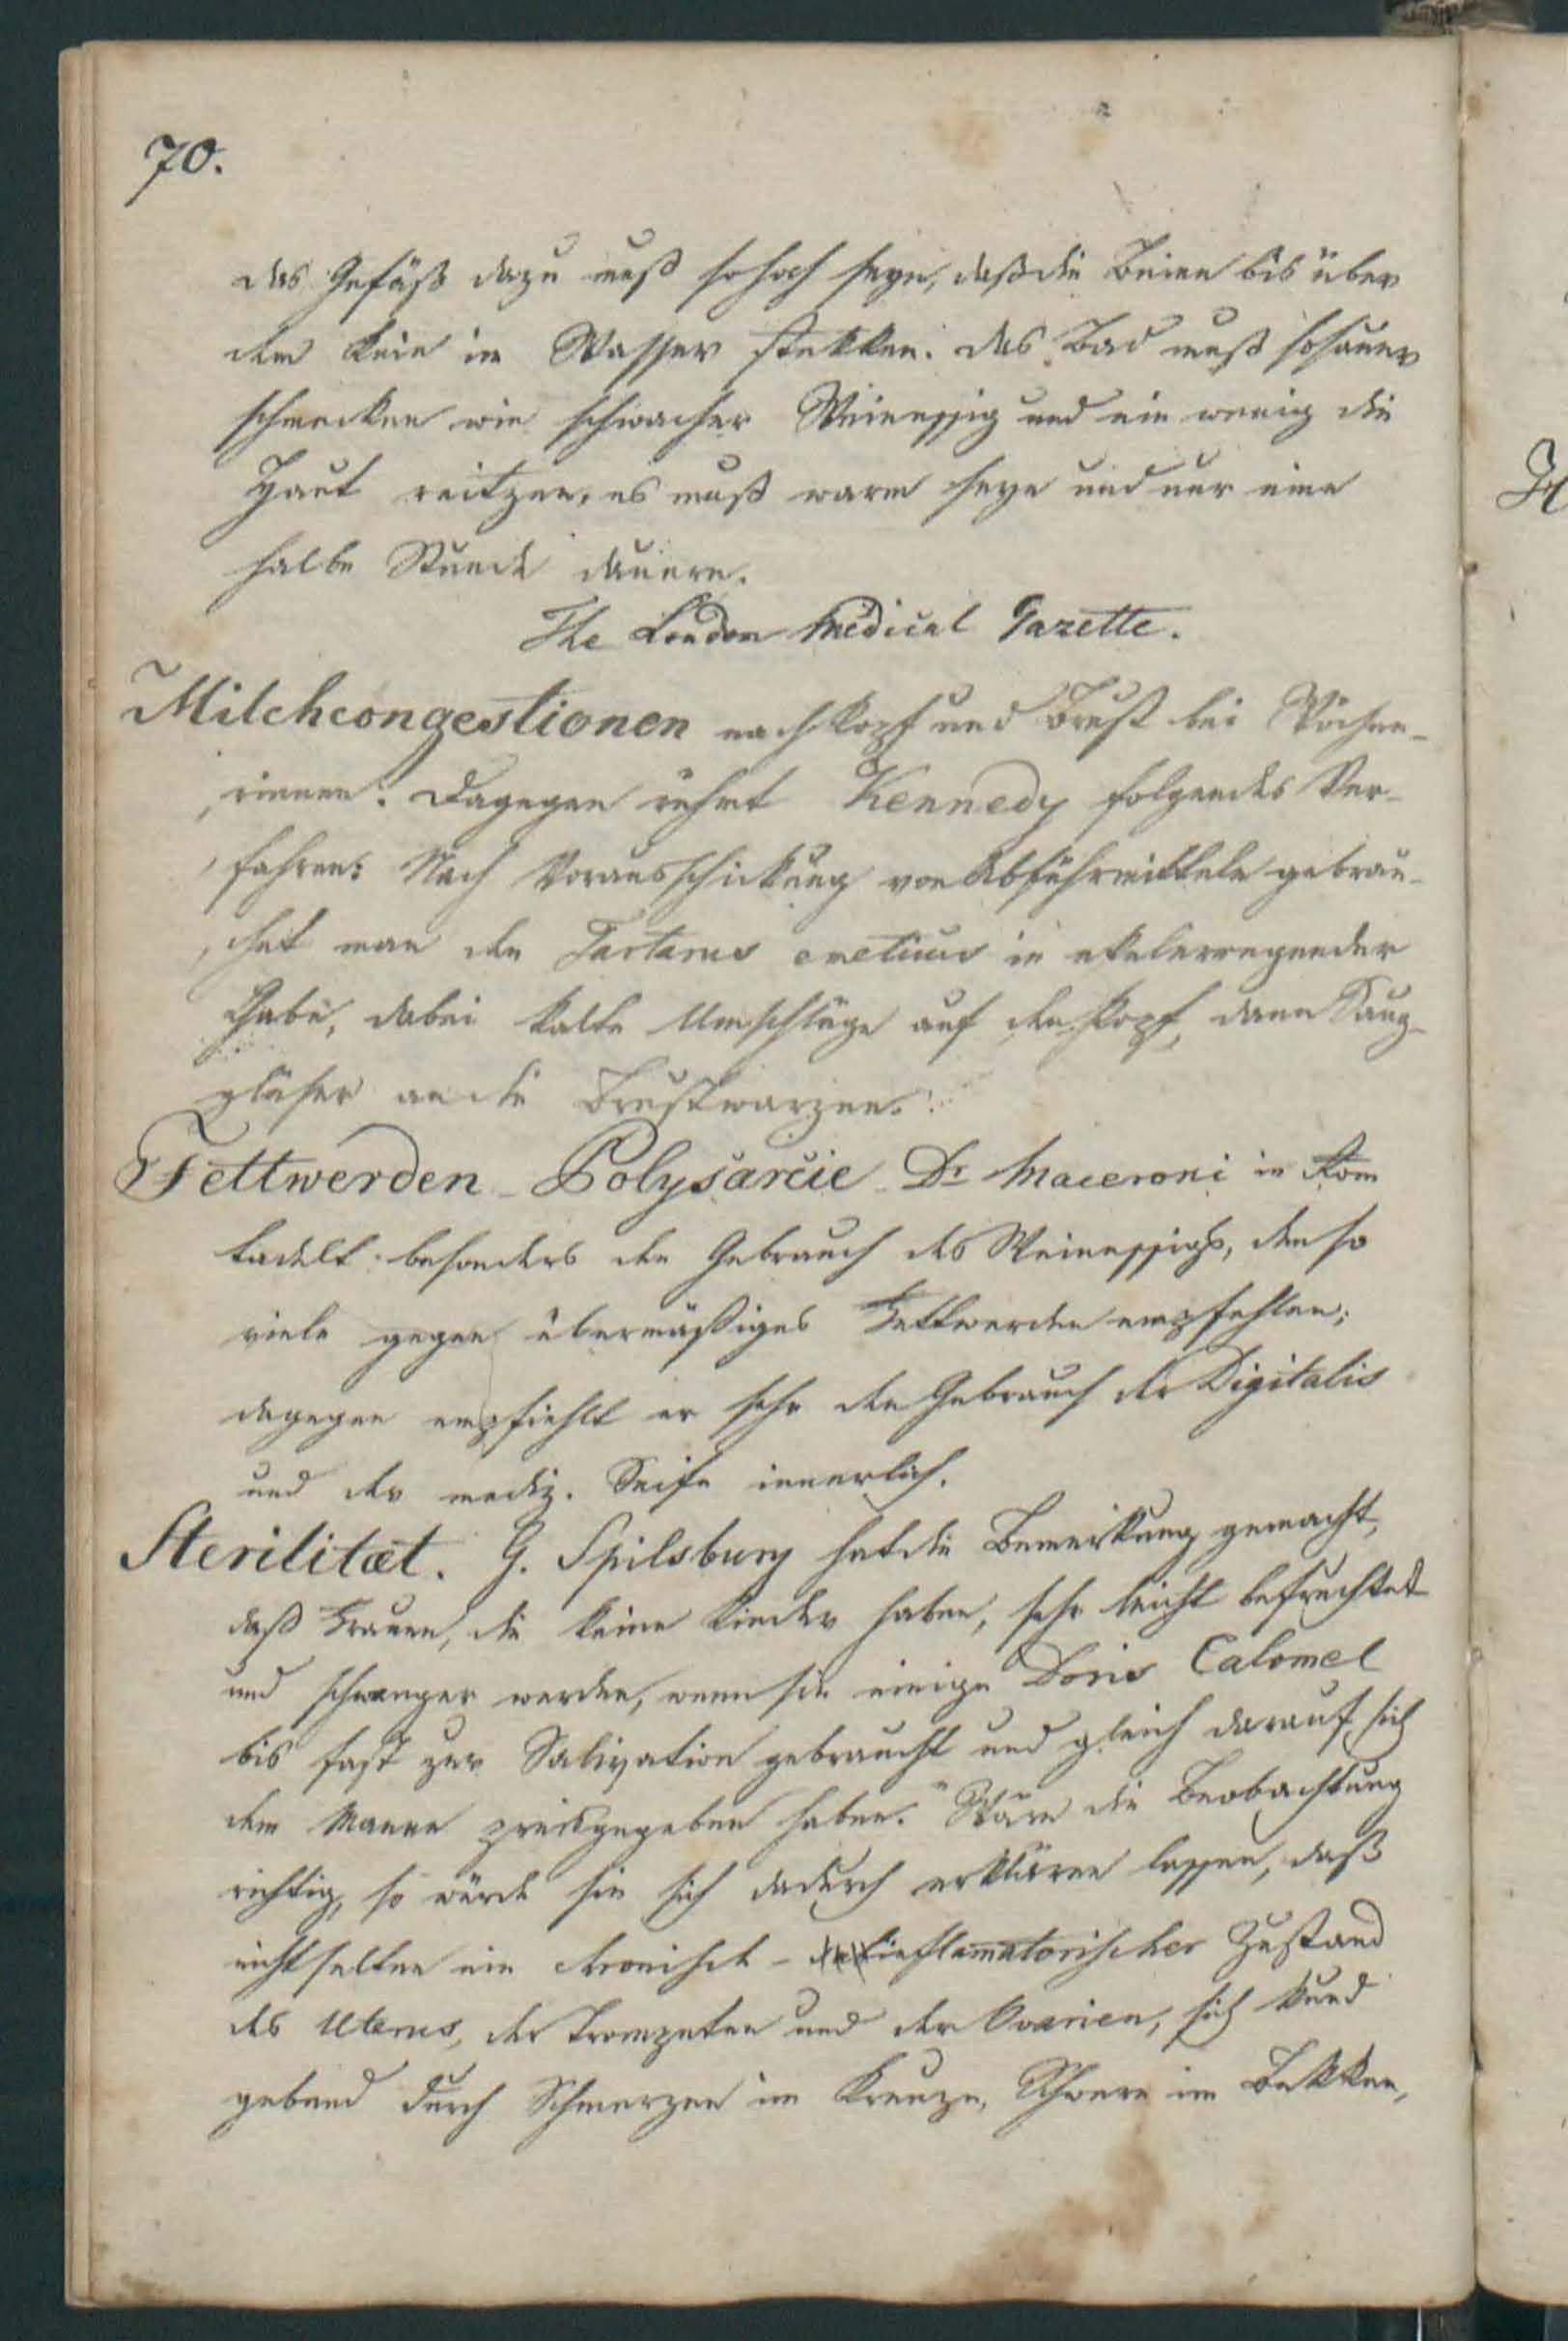 70.
das Gefäß dazu muß so hoch seyn, daß die Beine bis über
dem Knie im Wasser stekken. das Bad muß so sauer
schmecken wie schwacher Weinessig und ein wenig die
Haut reitzen, es muß warm seyn und nur eine
halbe Stunde dauern.
The London Medical Gazette.
Milchcongestionen nach Kopf und Brust bei Wöchne-
rinnen. Dagegen rühmt Kennedy folgendes Ver-
fahren: Nach Vorausschickung von Abführmitteln gebrau-
chet man den Tartarus emeticus in ekelerregender
Gabe, dabei kalte Umschläge auf den Kopf, dann Saug-
gläser an die Brustwarzen.
Fettwerden - Polysarcie - Dr Maceroni in Rom
tadelt besonders den Gebrauch des Weinessigs, den so
viele gegen übermäßiges Fettwerden empfehlen;
dagegen empfiehlt er sehr den Gebrauch der Digitalis
und der mediz. Seife innerlich.
Sterilitæt. G. Spilsbury hat die Bemerkung gemacht,
daß Frauen, die keine Kinder haben, sehr leicht befruchtet
und schwanger werden, wenn sie einige Dosis Calomel
bis fast zur Salivation gebraucht und gleich darauf sich
dem Manne preisgegeben haben." Wäre die Beobachtung
richtig, so würde sie sich dadurch erklären lassen, daß
nicht selten ein chronisch - inflamatorischer Zustand
des Uterus, der Trompeten und der Ovarien, sich kund
gebend durch Schmerzen im Kreuze, Schwere im Bekken,
H